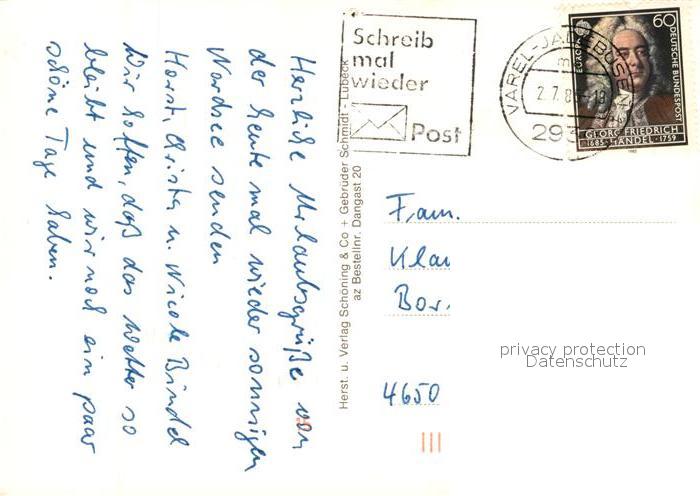 Herzliche Urlaubsgrüße von
der heute mal wieder sonnigen
Nordsee senden
Horst, Christa u. Nicole Bindel
Wir hoffen, daß das Wetter so
bleibt und wir noch ein paar
schöne Tage haben.
Herst. u. Verlag Schöning & Co + Gebrüder Schmidt - Lübeck
az Bestellnr. Dangast 20
Schreib
mal
wieder
Post
VAREL-JADEBUSEN
2.7.8
293
EUROPA
60
DEUTSCHE BUNDESPOST
GEORG FRIEDRICH
1685 HÄNDEL 1759
Fam.
Klau
Bor.
4650
privacy protection
Datenschutz